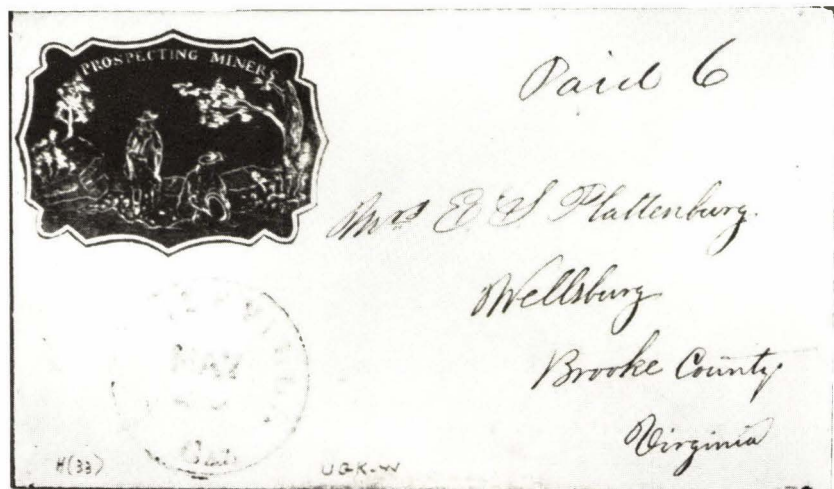 PROSPECTING MINERS
Paid 6
Mrs E. S. Plattenburg.
Wellsburg
Brooke County.
Virginia
MAY
Cal
H(33)
UGK-W